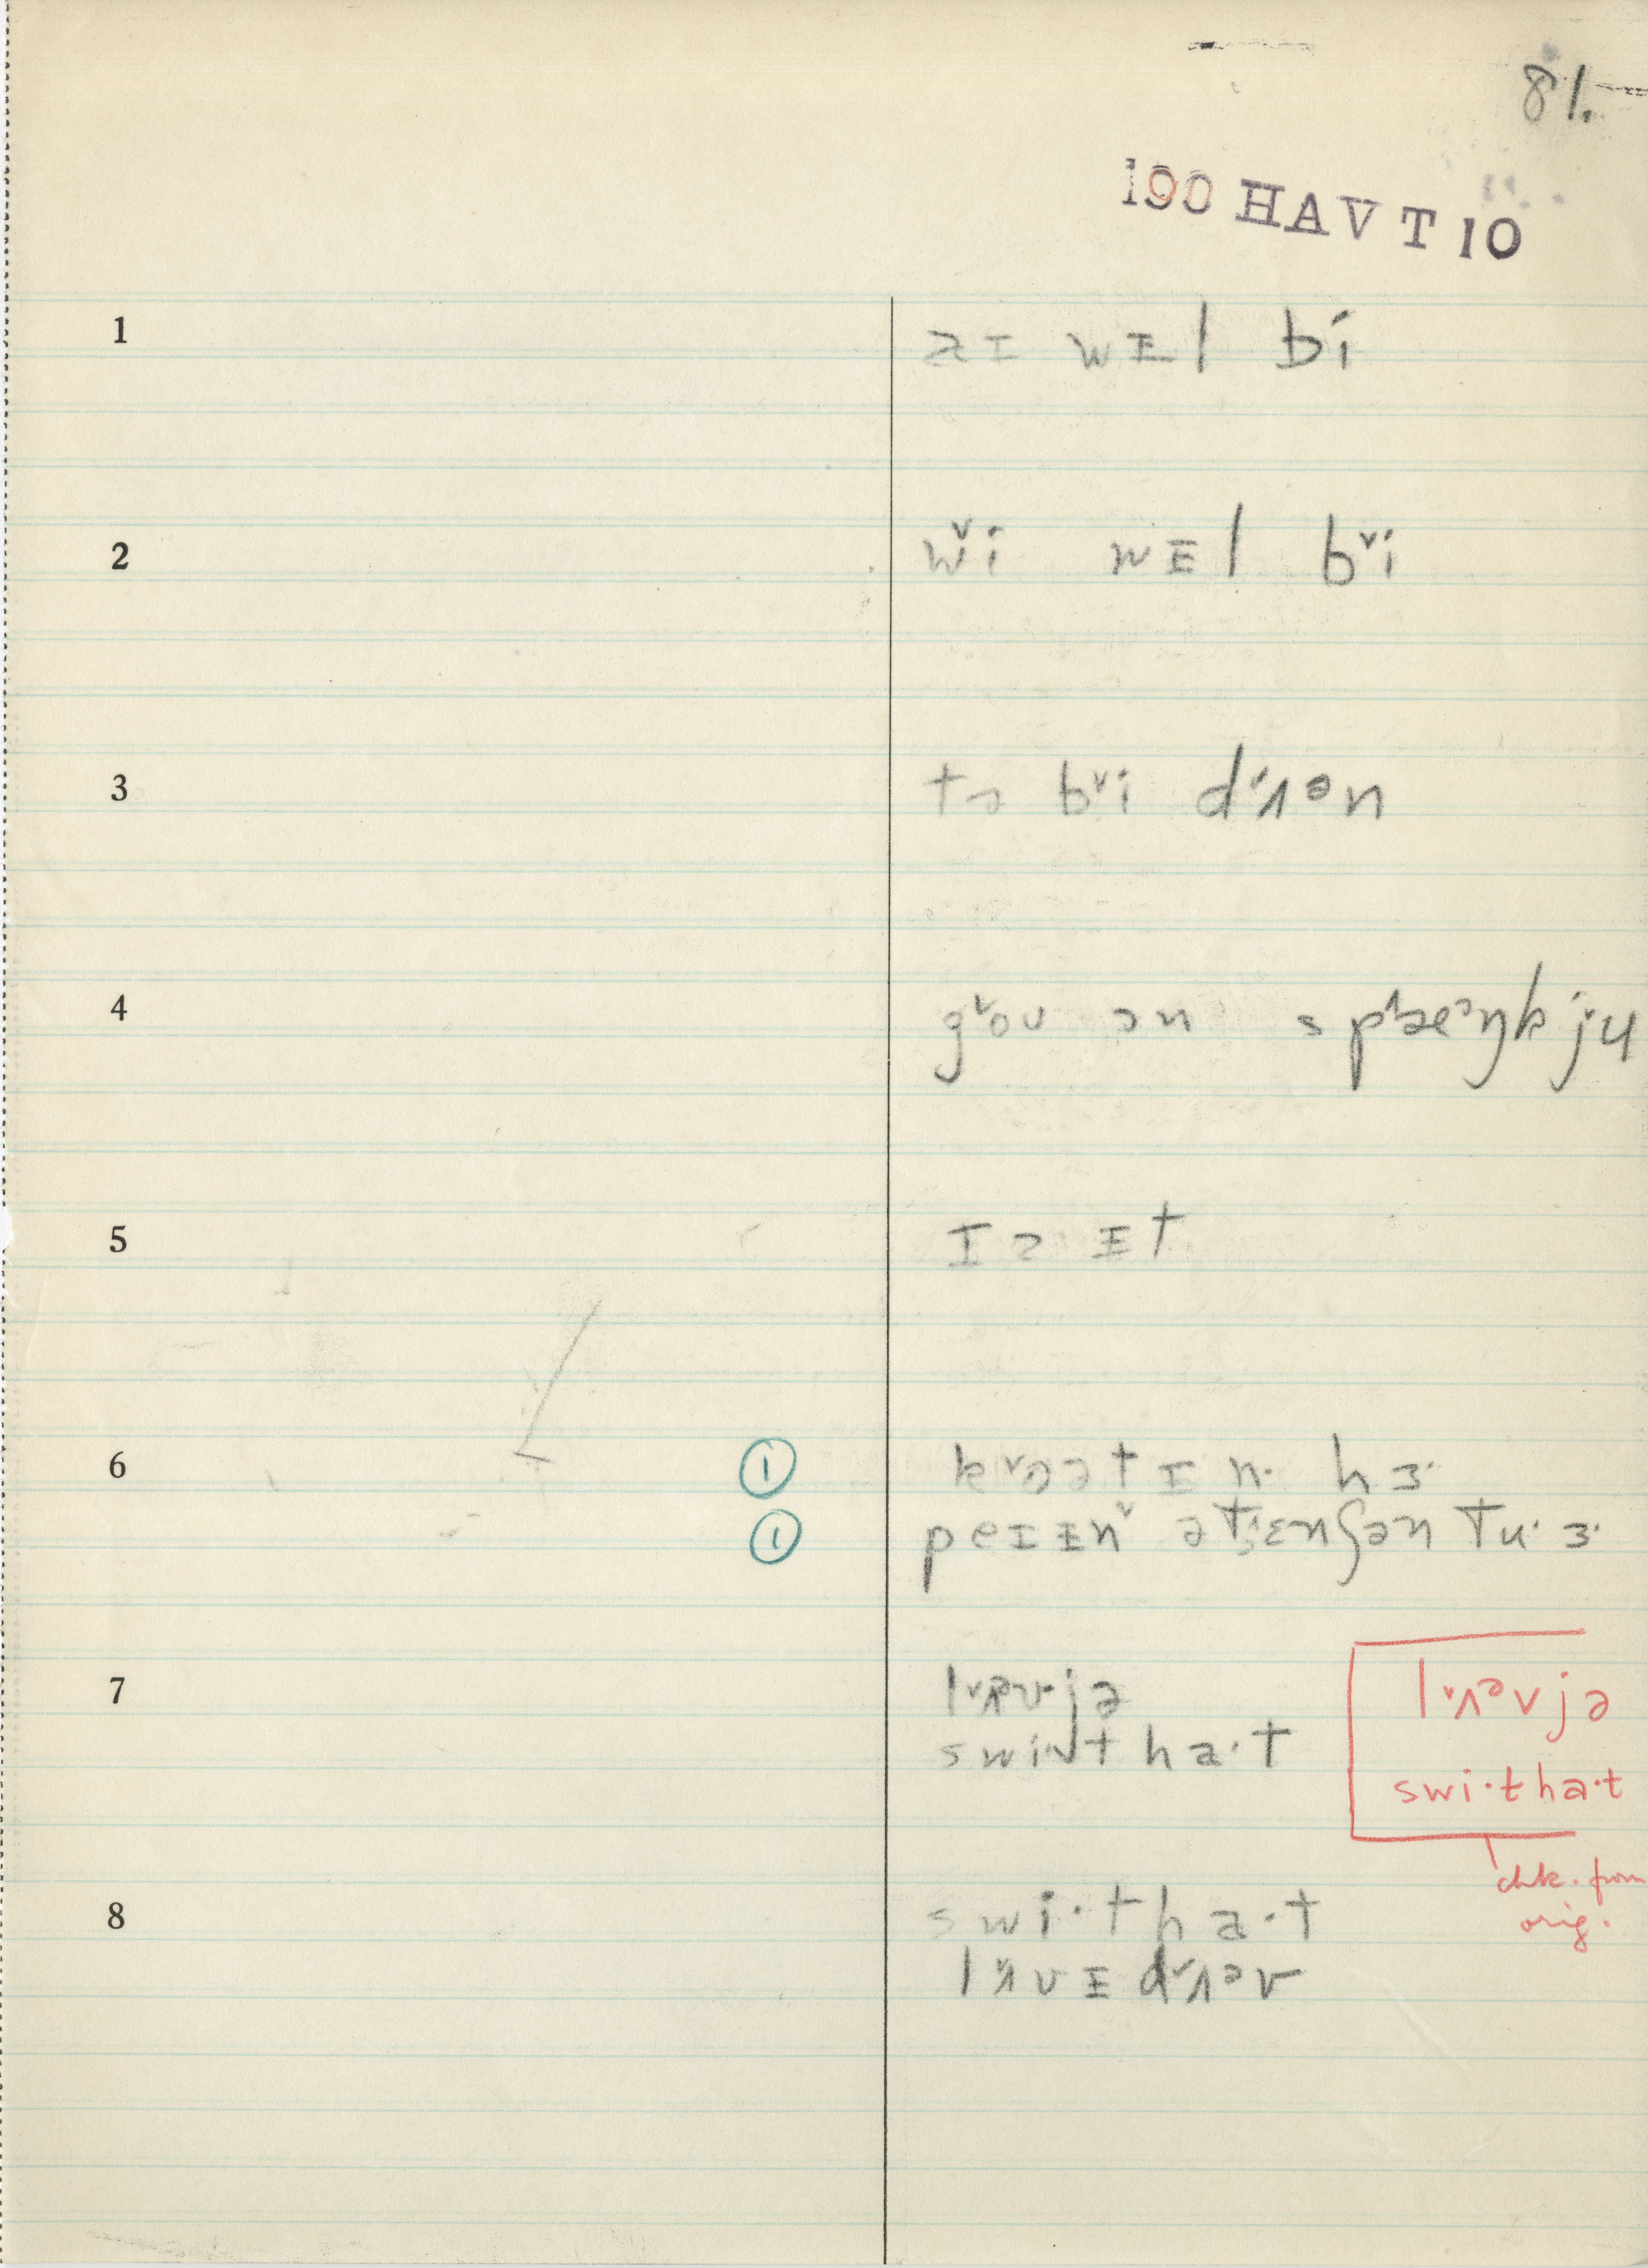 81.
190 HAVT10
1 aɪ wᵻl bi
2 wˇi wᵻl bˇi
3 tə bˇi dˇʌən
4 gˇoʊ ɔn spˆæᵊŋk jˇu
5 ɪ ə ᵻt
① 6 kˇɔətɪn· hɜ·
① peɪᵻnˇ ətˇɛnʃən tu· ɜ·
7 lˇʌəvjə
swi·t ha·t
lˇʌəvjə
swi·t ha·t
chk. from
orig.
8 swi·t ha·t
lˇʌvᵻ dˇʌəv